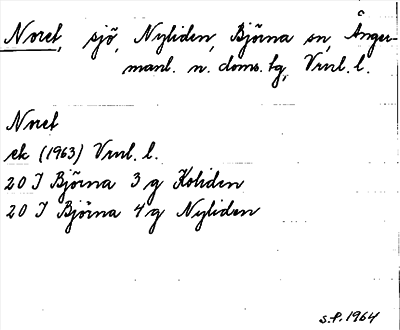 Noret, sjö, Nyliden, Björna sn, Ånger-
manl. n. doms. tg, Vnrl. l.
Noret
ek (1963) Vnrl. l.
20 J Björna 3 g Koliden
20 J Björna 4 g Nyliden
s.f. 1964